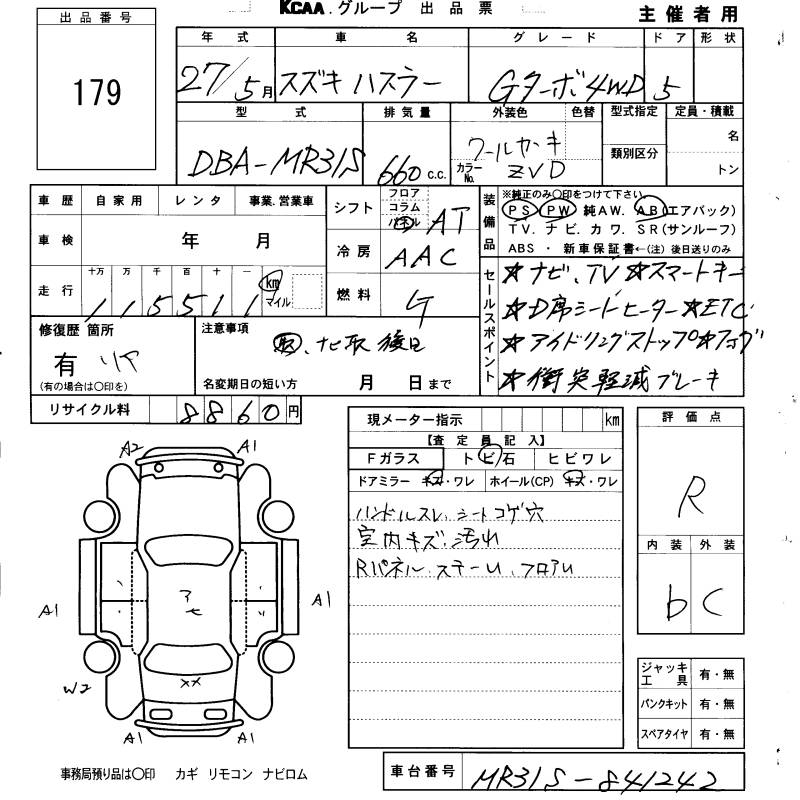 KCAA.グループ 出品票
主催者用
出品番号
179
年式 車名 グレード ドア 形状
27/5月 スズキ ハスラー Gターボ4WD 5
型式 排気量 外装色 色替 型式指定 定員・積載
DBA-MR31S 660 c.c. クールカーキ カラーNo. ZVD 類別区分 名 トン
車歴 自家用 レンタ 事業.営業車
車検 年 月
走行 十万 万 千 百 十 一 km マイル
115511
シフト フロア コラム パネル AT
冷房 AAC
燃料 G
装備品 ※純正のみ〇印をつけて下さい
PS PW 純AW. AB(エアバック)
TV. ナビ. カワ. SR(サンルーフ)
ABS ・ 新車保証書←(注) 後日送りのみ
セールスポイント
☆ナビ、TV ☆スマートキー
☆D席シートヒーター ☆ETC
☆アイドリングストップ ☆フォグ
☆衝突軽減ブレーキ
修復歴 箇所
有 リヤ
(有の場合は〇印を)
注意事項
取、ナビ取 後日
名変期日の短い方 月 日まで
リサイクル料 8860円
現メーター指示 km
【査定員記入】
Fガラス トビ石 ヒビワレ
ドアミラー キズ・ワレ ホイール(CP) キズ・ワレ
ハンドルスレ、シートコゲ穴
室内キズ、汚れ
Rパネル、ステーU、フロアU
評価点
R
内装 外装
b C
A2 A1
A1 A1
アセ
W2 XX
A1 A1
ジャッキ工具 有・無
パンクキット 有・無
スペアタイヤ 有・無
事務局預り品は〇印 カギ リモコン ナビロム
車台番号 MR31S-841242